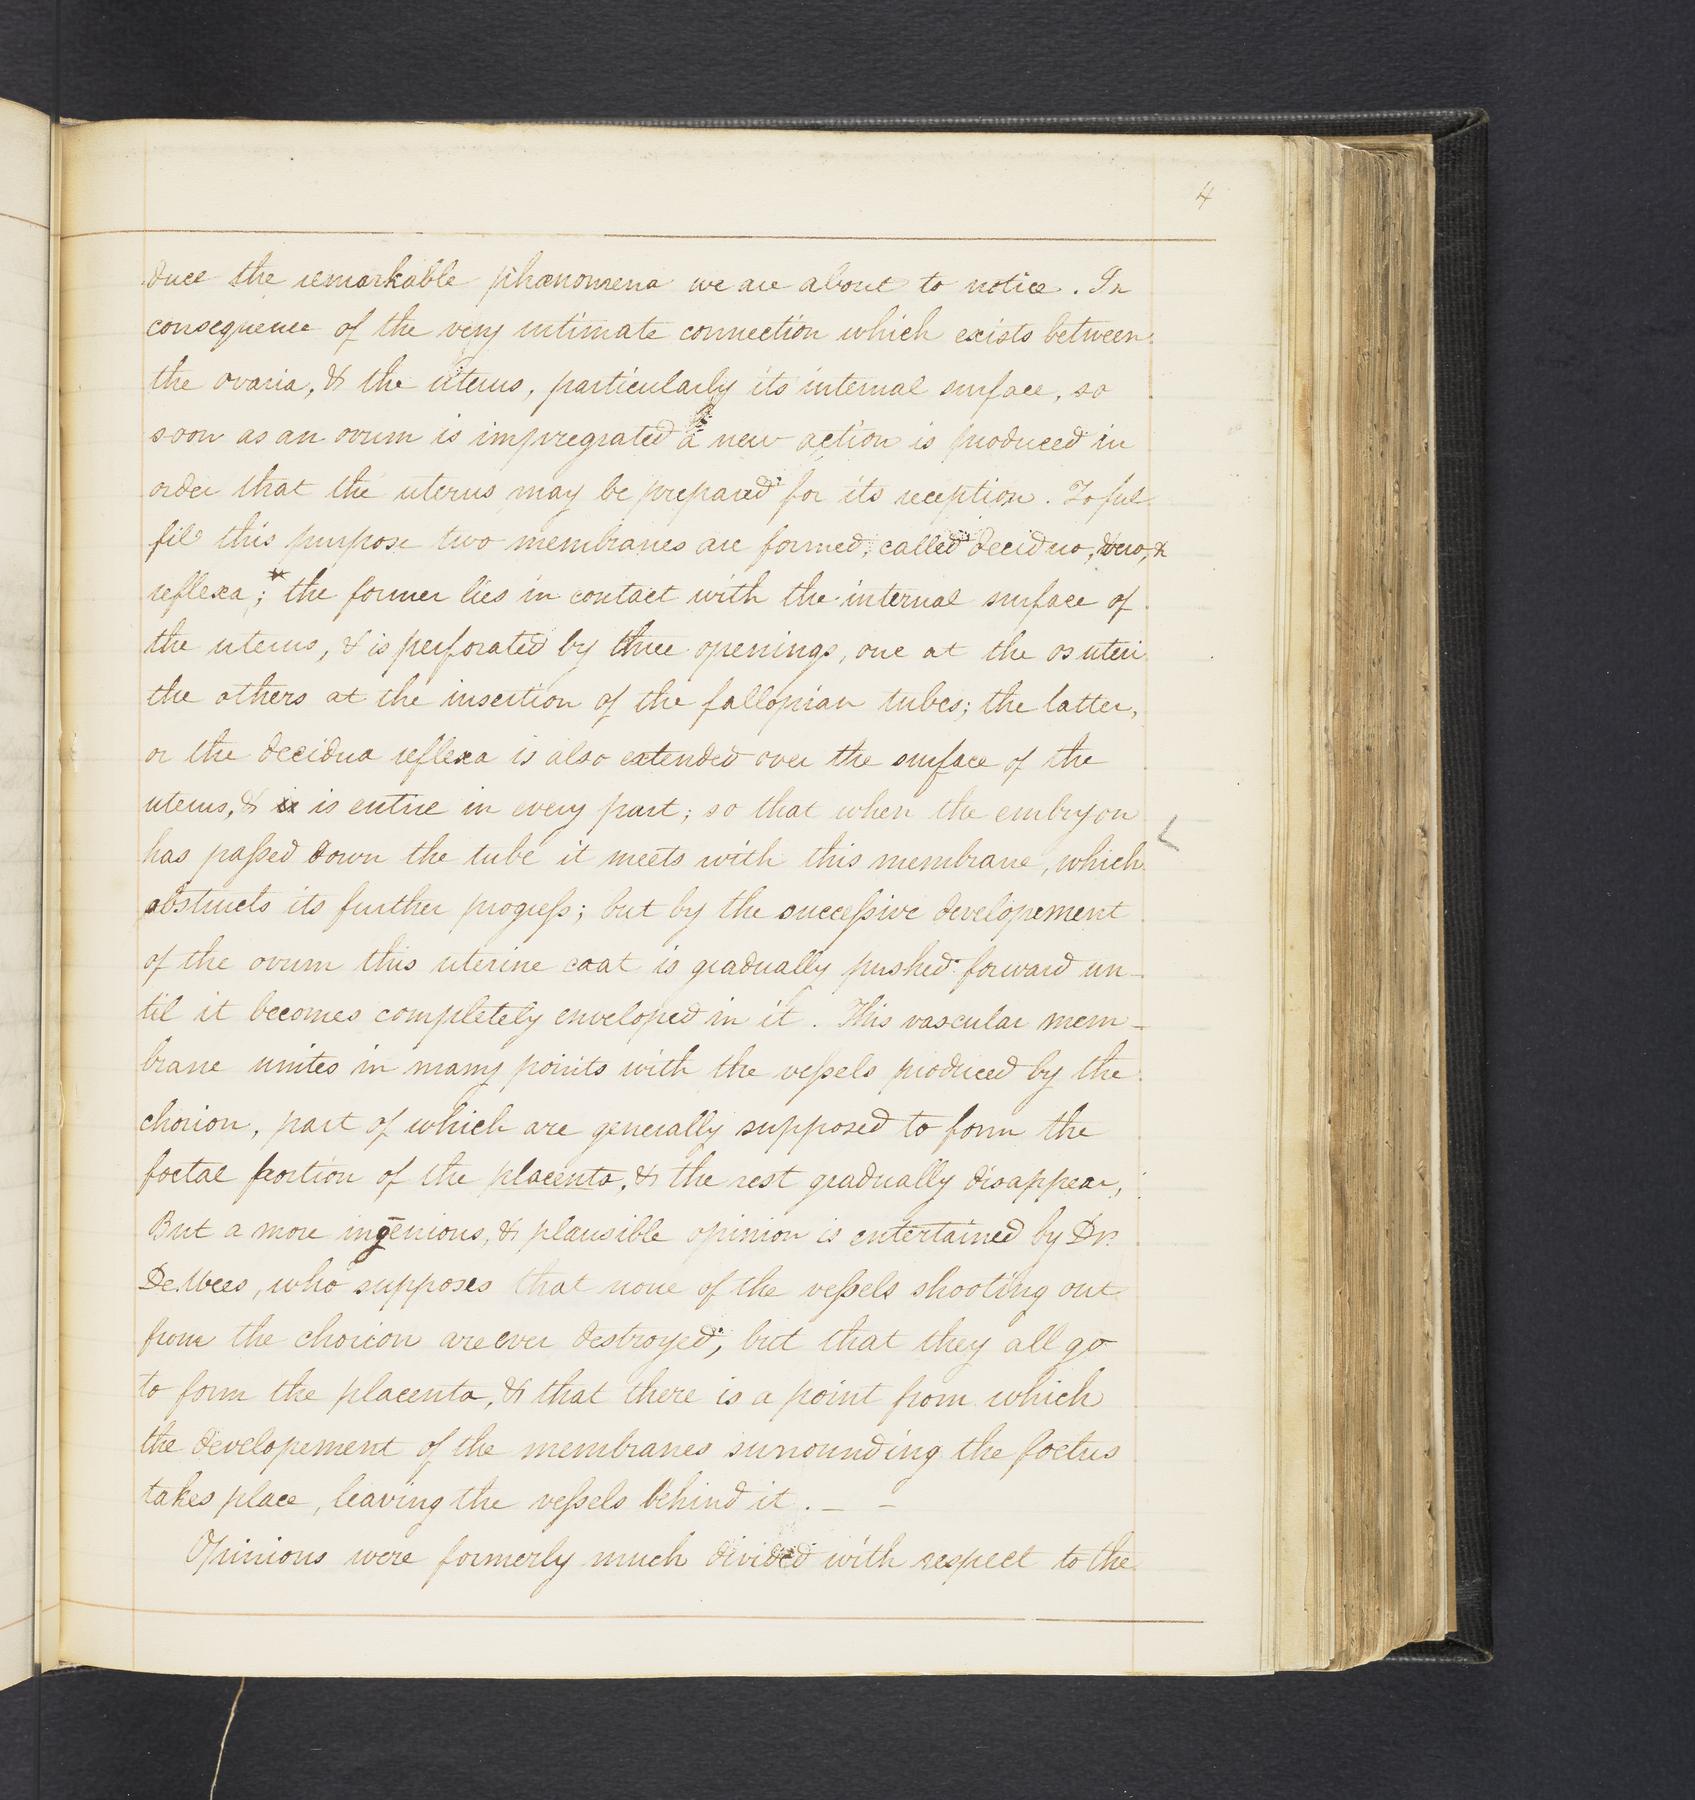 4
duce the remarkable phænomena we are about to notice. In
consequence of the very intimate connection which exists between
the ovaria, & the uterus, particularly its internal surface, so
soon as an ovum is impregnated a new action is produced in
order that the uterus may be prepared for its reception. To ful
fil this purpose two membranes are formed, called decidua, vera, &
reflexa; * the former lies in contact with the internal surface of
the uterus, & is perforated by three openings, one at the os uteri
the others at the insertion of the fallopian tubes; the latter,
or the decidua reflexa is also extended over the surface of the
uterus, & is entire in every part; so that when the embryon
has paſsed down the tube it meets with this membrane, which
obstructs its further progreſs; but by the succeſsive developement
of the ovum this uterine coat is gradually pushed forward un-
til it becomes completely enveloped in it. This vascular mem-
brane unites in many points with the veſsels produced by the
chorion, part of which are generally supposed to form the
foetal portion of the placenta, & the rest gradually disappear;
But a more ingenious, & plausible opinion is entertained by Dr.
DeWees, who supposes that none of the veſsels shooting out
from the chorion are ever destroyed, but that they all go
to form the placenta, & that there is a point from which
the developement of the membranes surrounding the foetus
takes place, leaving the veſsels behind it. — —
Opinions were formerly much divided with respect to the